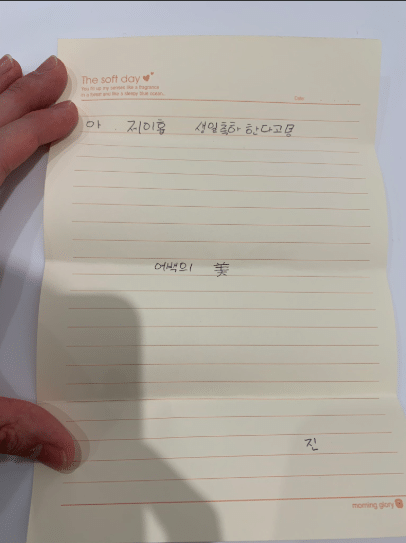 The soft day
Date.
아 제이홉 생일축하 한다고명
여백의 美
진
morning glory